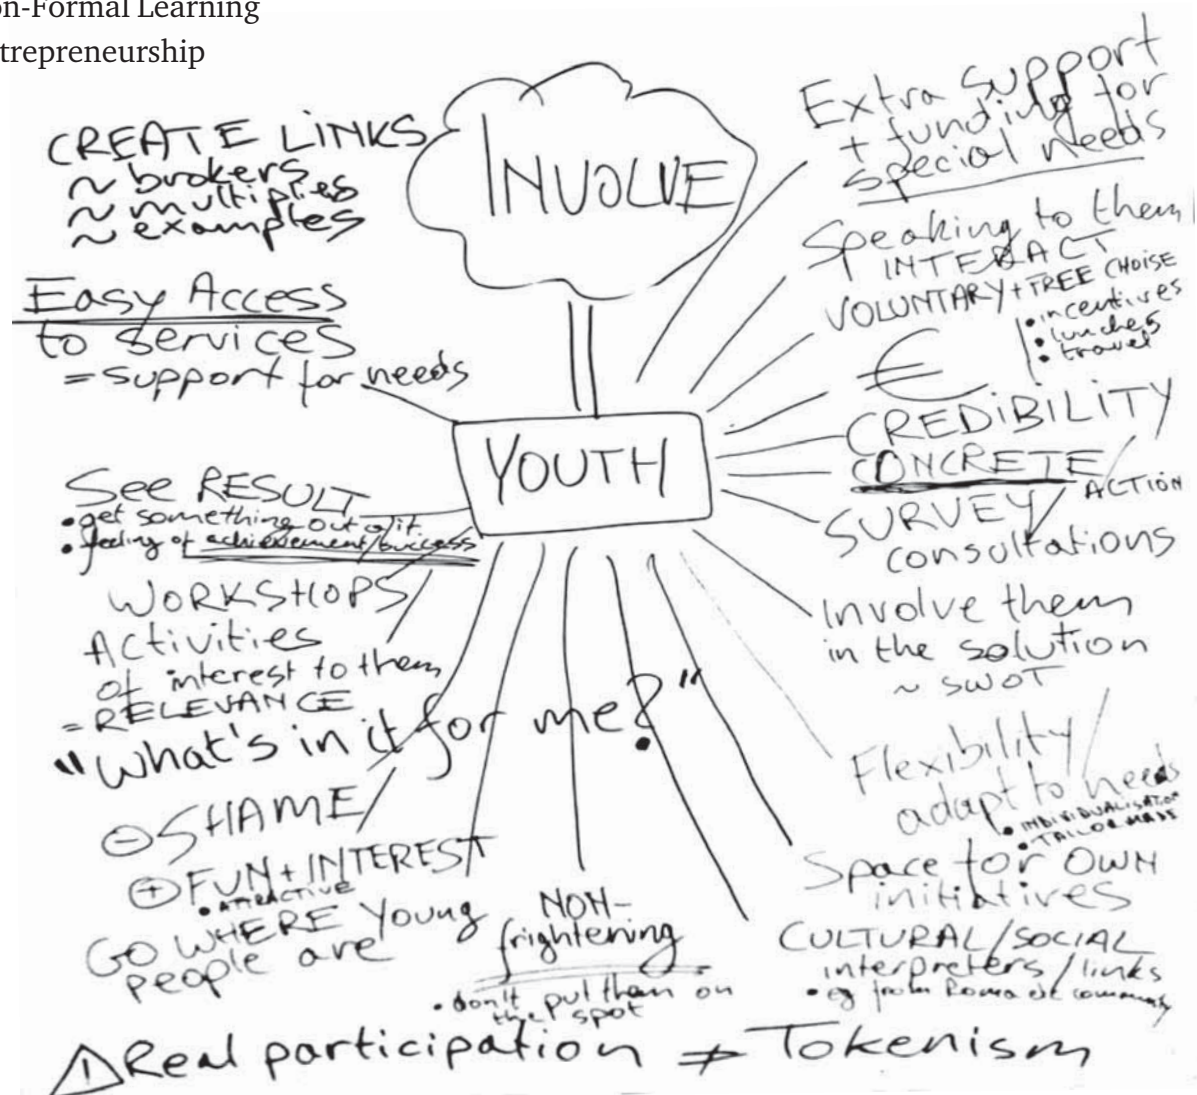 on-Formal Learning
trepreneurship
INVOLVE
YOUTH
CREATE LiNKS
~ brokers
~ multiplies
~ examples
Easy Access
to services
= support for needs
See RESULT
• get something out of it
• feeling of achievement/success
WORKSHOPS
Activities
of interest to them
= RELEVANCE
"What's in it for me?"
⊖ SHAME
⊕ FUN + INTEREST
• ATTRACTIVE
GO WHERE Young
people are
NON-
frightening
• don't put them on
the spot
Extra support
+ funding for
special needs
Speaking to them
INTERACT
VOLUNTARY + FREE CHOISE
• incentives
• lunches
• travel
€
CREDiBiLiTY
CONCRETE /
ACTION
SURVEY /
consultations
Involve them
in the solution
~ SWOT
Flexibility /
adapt to needs
• INDIVIDUALISATION
• TAILORMADE
Space for OWN
initiatives
CULTURAL/SOCIAL
interpreters / links
• eg from Roma etc community
⚠ Real participation ≠ Tokenism